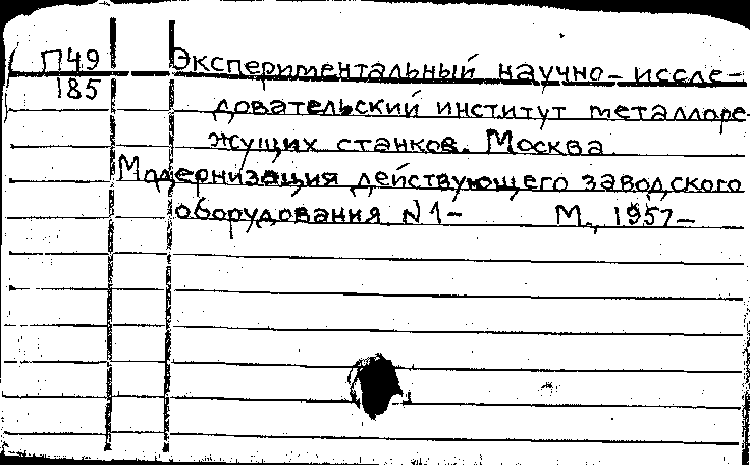 П49 Экспериментальный научно-иссле-
185 довательский институт металлоре-
жущих станков. Москва
Модернизация действующего заводского
оборудования N1- М., 1957-